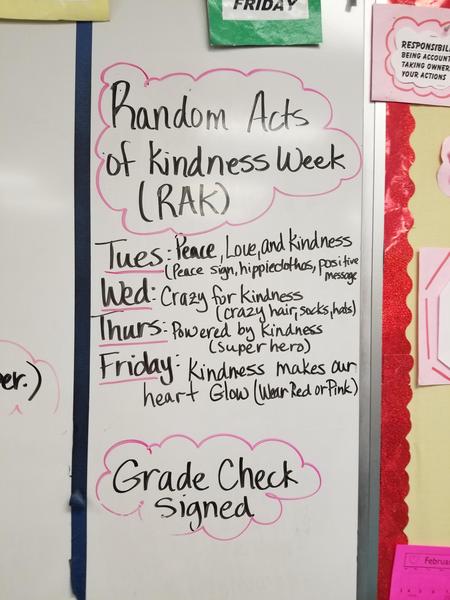 FRIDAY
RESPONSIBIL
BEING ACCOUNT
TAKING OWNER
YOUR ACTIONS
Random Acts
of Kindness Week
(RAK)
Tues: Peace, Love, and Kindness
(Peace sign, hippie clothes, positive
message
Wed: Crazy for Kindness
(crazy hair, socks, hats)
Thurs: Powered by Kindness
(super hero)
Friday: Kindness makes our
heart Glow (Wear Red or Pink)
er.)
Grade Check
Signed
Februa